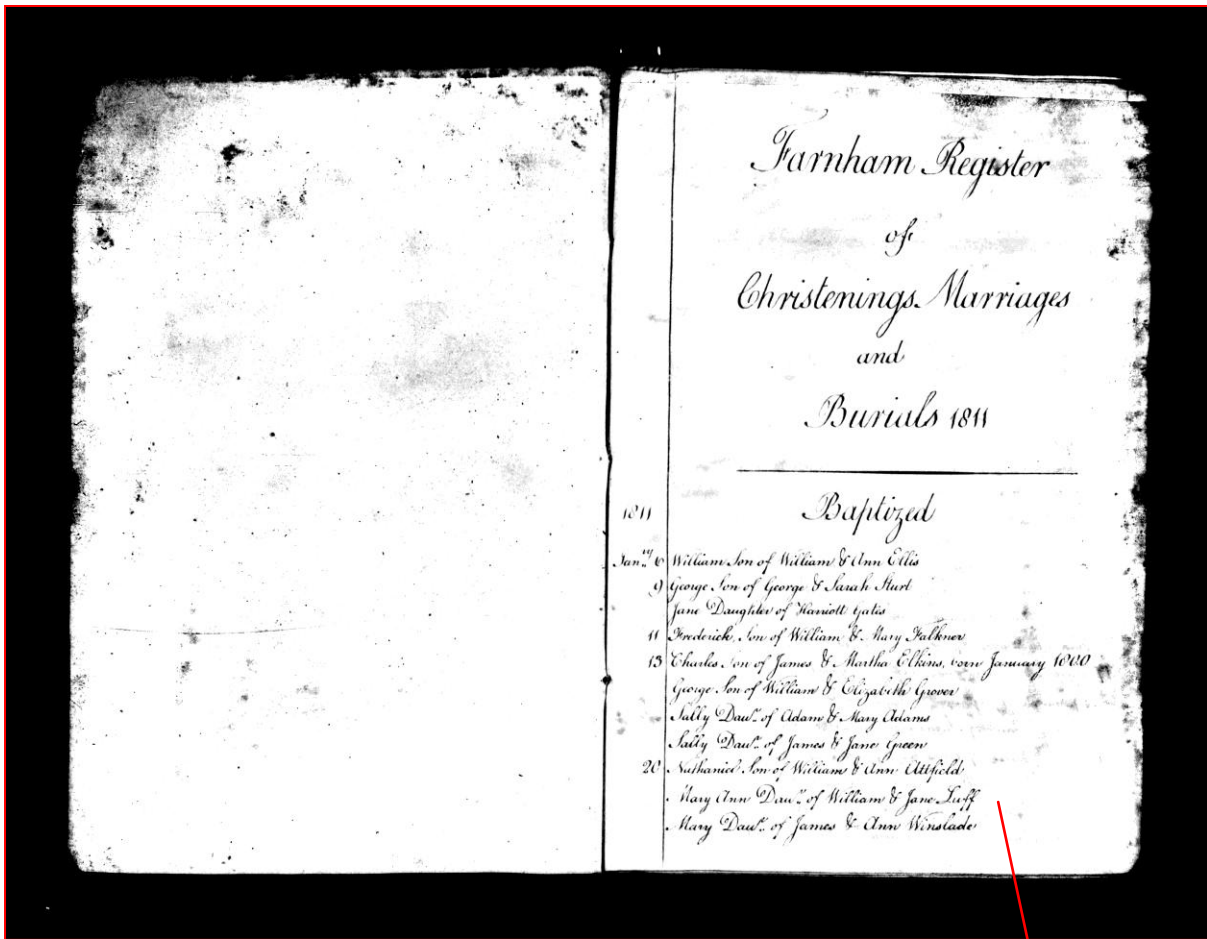 Farnham Register
of
Christenings Marriages
and
Burials 1811
1811 Baptized
Jan.ry 6 William Son of William & Ann Ellis
9 George Son of George & Sarah Sturt
Jane Daughter of Harriott Gates
11 Frederick Son of William & Mary Falkner
13 Charles Son of James & Martha Elkins, born January 1800
George Son of William & Elizabeth Grover
Sally Dau.r of Adam & Mary Adams
Sally Dau.r of James & Jane Green
20 Nathaniel Son of William & Ann Attfield
Mary Ann Dau.r of William & Jane Luff
Mary Dau.r of James & Ann Winslade